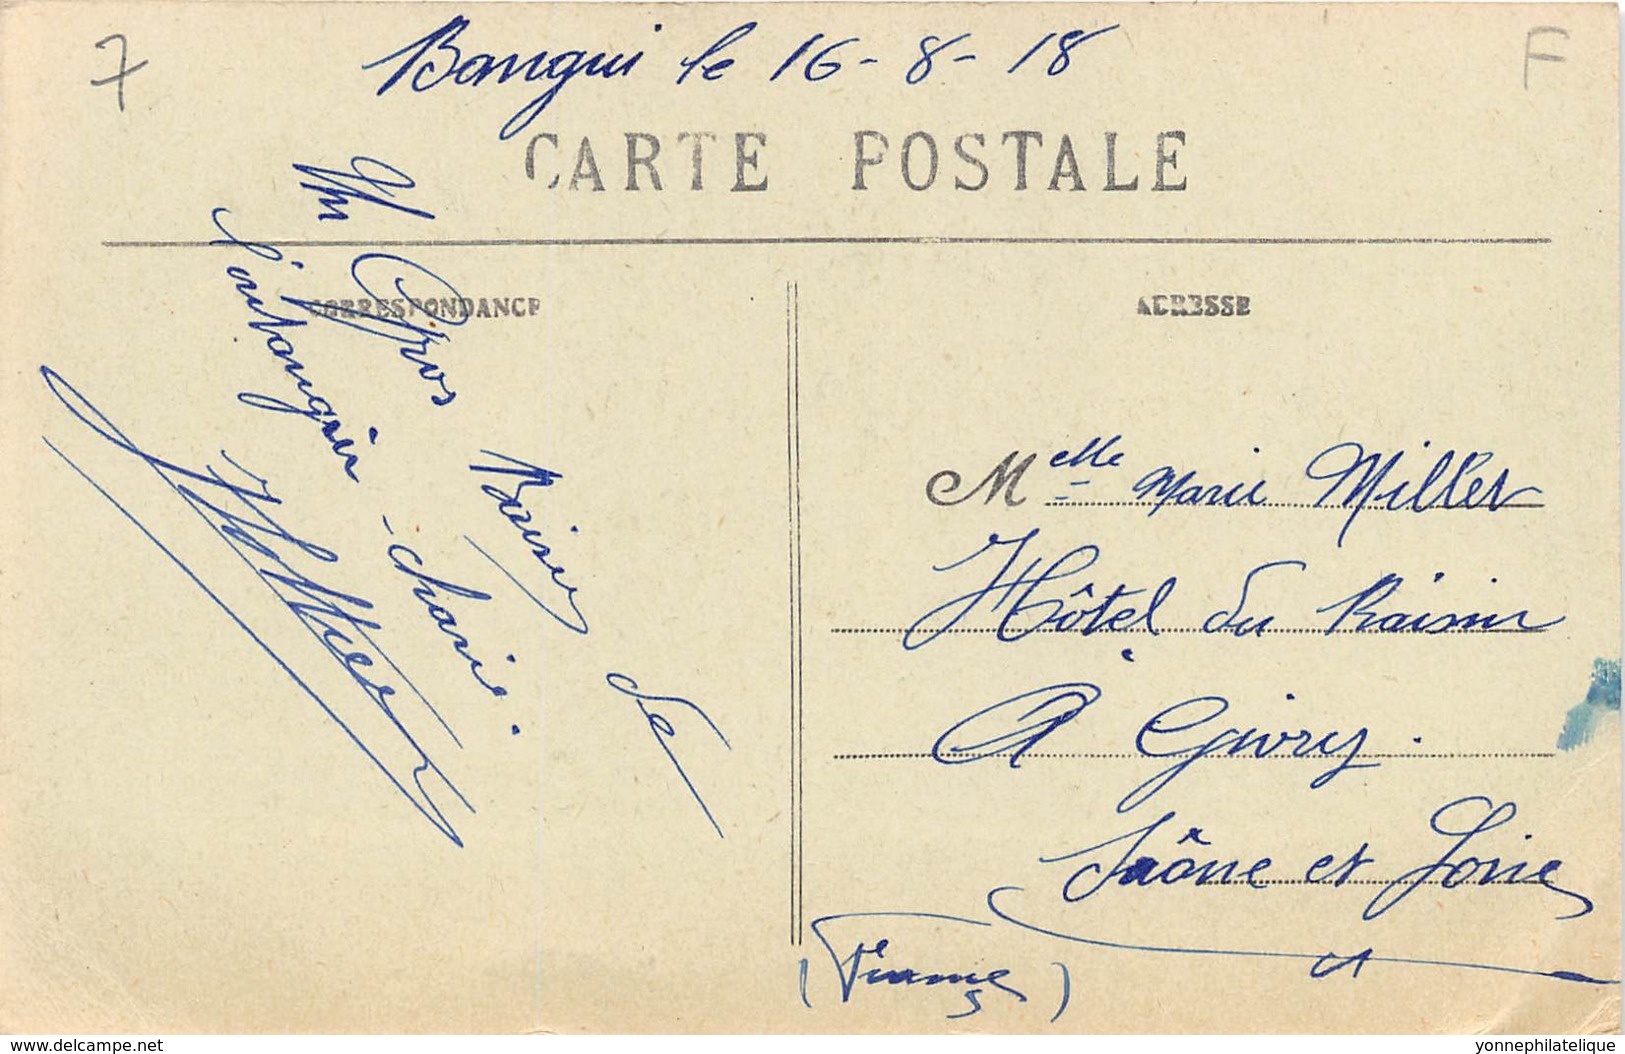 7
Bangui le 16-8-18
F
CARTE POSTALE
CORRESPONDANCE
ADRESSE
Un Gros Baiser de
l'oubangui - chari.
Melle Marie Miller
Hôtel du Raisin
A Givry.
Saône et Loire
(France)
www.delcampe.net
yonnephilatelique